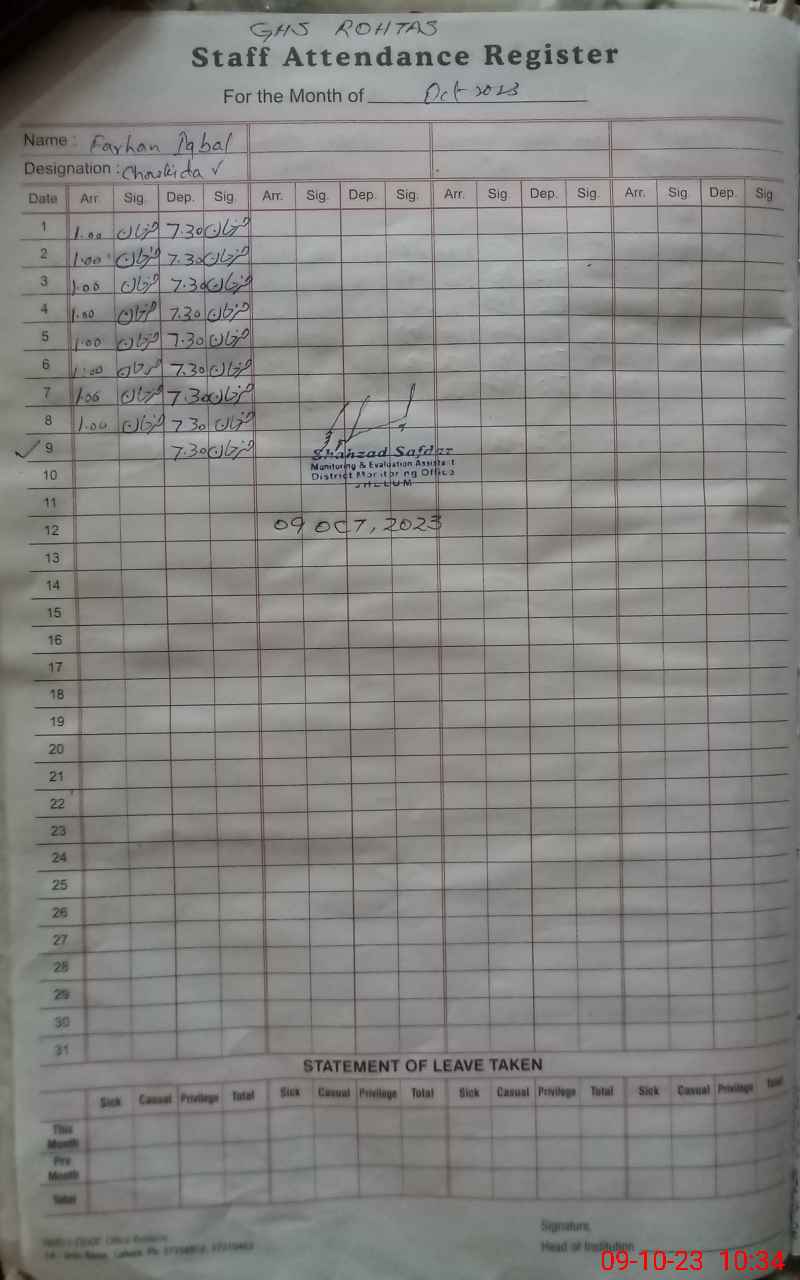 GHS ROHTAS
Staff Attendance Register
For the Month of Oct 2023
Name : Farhan Iqbal
Designation :
Date Arr. Sig. Dep. Sig. Arr. Sig. Dep. Sig. Arr. Sig. Dep. Sig. Arr. Sig. Dep. Sig
1 1.00 فرحان 7.30 فرحان
2 1.00 فرحان 7.30 فرحان
3 1.00 فرحان 7.30 فرحان
4 1.00 فرحان 7.30 فرحان
5 1.00 فرحان 7.30 فرحان
6 1.00 فرحان 7.30 فرحان
7 1.00 فرحان 7.30 فرحان
8 1.00 فرحان 7.30 فرحان
9 7.30 فرحان
Shahzad Safdar
Monitoring & Evaluation Assistant
District Monitoring Office
JHELUM
10
11
12 09 OCT, 2023
13
14
15
16
17
18
19
20
21
22
23
24
25
26
27
28
29
30
31
STATEMENT OF LEAVE TAKEN
Sick Casual Privilege Total Sick Casual Privilege Total Sick Casual Privilege Total Sick Casual Privilege Total
This Month
Pre Month
Total
Signature,
Head of Institution
09-10-23 10:34